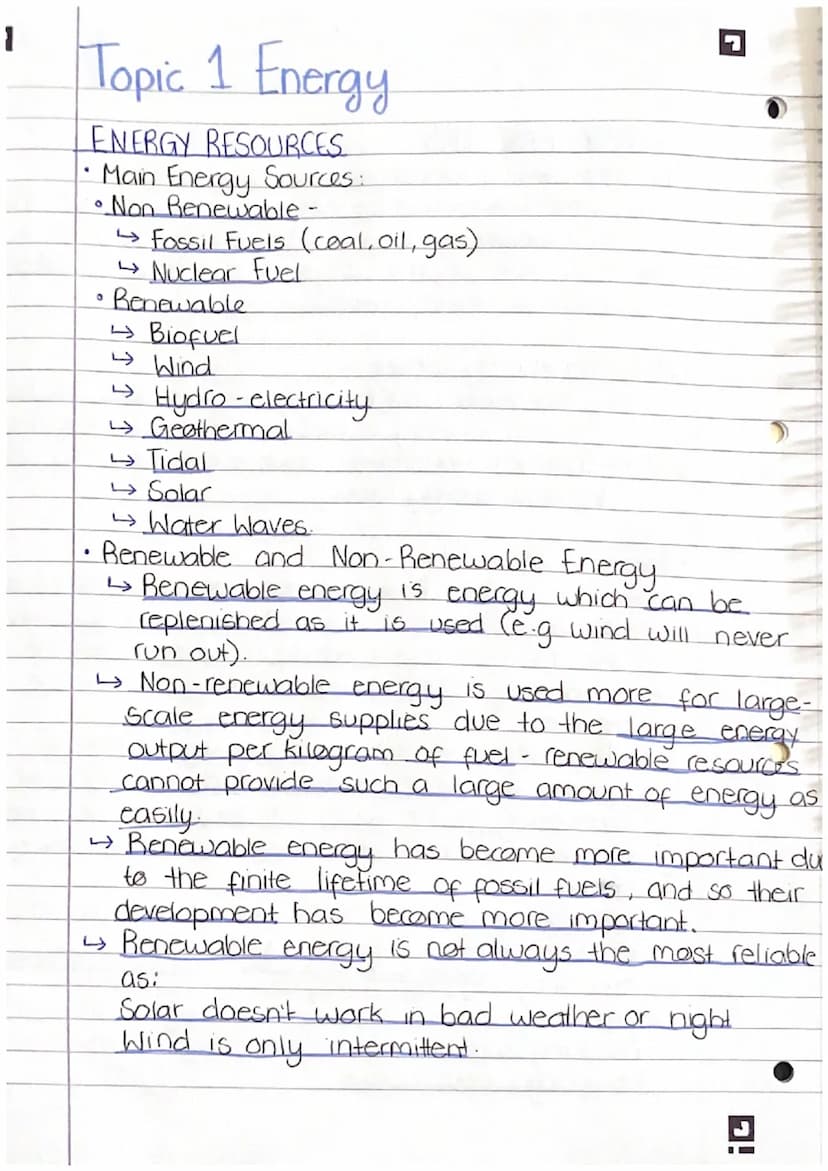 Topic 1 Energy
ENERGY RESOURCES
• Main Energy Sources:
• Non Renewable -
↳ Fossil Fuels (coal, oil, gas)
↳ Nuclear Fuel
• Renewable
↳ Biofuel
↳ Wind
↳ Hydro-electricity
↳ Geothermal
↳ Tidal
↳ Solar
↳ Water Waves.
• Renewable and Non-Renewable Energy
↳ Renewable energy is energy which can be
replenished as it is used (e.g wind will never
run out).
↳ Non-renewable energy is used more for large-
scale energy supplies due to the large energy
output per kilogram of fuel - renewable resources
cannot provide such a large amount of energy as
easily.
↳ Renewable energy has become more important du
to the finite lifetime of fossil fuels, and so their
development has become more important.
↳ Renewable energy is not always the most reliable
as:
Solar doesn't work in bad weather or night
Wind is only intermittent.